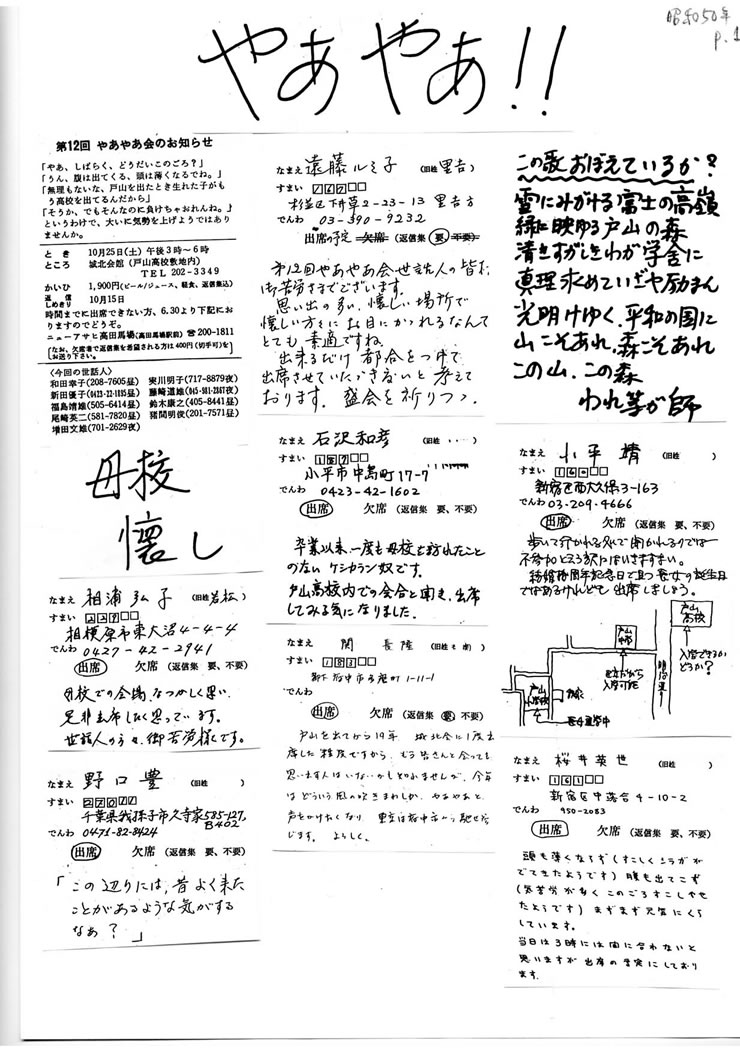 昭和50年
P.1
やあやあ!!
第12回 やあやあ会のお知らせ
「やあ、しばらく、どうだいこのごろ？」
「うん、腹は出てくる、頭は薄くなるでね。」
「無理もないな、戸山を出たとき生れた子がもう高校を出てるんだから」
「そうか、でもそんなのに負けちゃおれんね。」
というわけで、大いに気勢を上げようではありませんか。
とき 10月25日(土)午後3時〜6時
ところ 城北会館 (戸山高校敷地内)
TEL 202-3349
かいひ 1,900円(ビール/ジュース、軽食、返信集込)
返信しめきり 10月15日
時間までに出席できない方、6.30より下記におりますのでどうぞ。
ニューアサヒ高田馬場(高田馬場駅前) ☎200-1811
(なお、欠席者で返信集を希望される方は 400円(切手可)をお送り下さい。
〈今回の世話人〉
和田幸子(208-7605昼) 実川明子(717-8879夜)
新田優子(0423-22-1885昼) 藤崎道雄(045-981-2367夜)
福島靖雄(505-6414昼) 鈴木康之(405-8441昼)
尾崎英二(581-7820昼) 猪間明俊(201-7571昼)
増田文雄(701-2629夜)
母校
懐し
なまえ 相浦弘子 (旧姓 若松)
すまい 相模原市東大沼4-4-4
でんわ 0427-42-2941
出席 欠席 (返信集 要、不要)
母校での会場、なつかしく思い
是非出席したく思っています。
世話人の方々、御苦労様です。
なまえ 野口豊 (旧姓 )
すまい 27011
千葉県我孫子市久寺家585-127,
B402
でんわ 0471-82-8424
出席 欠席 (返信集 要、不要)
「この辺りには、昔よく来た
ことがあるような気がする
なあ？」
なまえ 遠藤ルミ子 (旧姓 里吉)
すまい 167
杉並区下井草2-23-13 里吉方
でんわ 03-390-9232
出席の予定 欠席 (返信集 要、不要)
第12回やあやあ会世話人の皆さん
御苦労さまでございます。
思い出の多い、懐しい場所で
懐しい方々にお目にかゝれるなんて
とても素適ですね。
出来るだけ都合をつけて
出席させていただきたいと考えて
おります。盛会を祈りつゝ
なまえ 石沢和彦 (旧姓 )
すまい 187
小平市中島町17-7
でんわ 0423-42-1602
出席 欠席 (返信集 要、不要)
卒業以来、一度も母校を訪れたこと
のない ケシカラン奴です。
戸山高校内での会合と聞き、出席
してみる気になりました。
なまえ 関 長隆
すまい 183
都下府中市 町1-11-1
でんわ
出席 欠席 (返信集 要、不要)
戸山を出てから19年 城北会に1度出
席した程度ですから、もう皆さんと会っても
思い出す人はいないかもしれませんが、今年
はどういう風の吹きまわしか、やあやあと
声をかけたくなり 東京は府中から馳せ参
じます。よろしく。
この歌おぼえているか？
雲にみがける富士の高嶺
緑に映ゆる戸山の森
清きすがしきわが学舎に
真理求めていざや励まん
光明けゆく、平和の国に
山こそあれ、森こそあれ
この山、この森
われ等が師
なまえ 小平靖 (旧姓 )
すまい 160
新宿区西大久保3-163
でんわ 03-209-4666
出席 欠席 (返信集 要、不要)
歩いて行かれる処で開かれるのでは
不参加という訳にはいきますまい。
結婚 周年記念日で且つ長女の誕生日
ではあるけれども出席しましょう。
戸山高校
戸山中学
入学できるか
どうか？
明治通り
戸山小学校
なまえ 桜井英世 (旧姓 )
すまい 161
新宿区中落合4-10-2
でんわ 950-2083
出席 欠席 (返信集 要、不要)
頭も薄くならず(すこしシラガが
でてきたようです)腹も出てこず
(気苦労が多く このごろすこしやせ
たようです)まずまず元気にくら
しています。
当日は3時には間に合わないと
思いますが出席の予定にしており
ます。